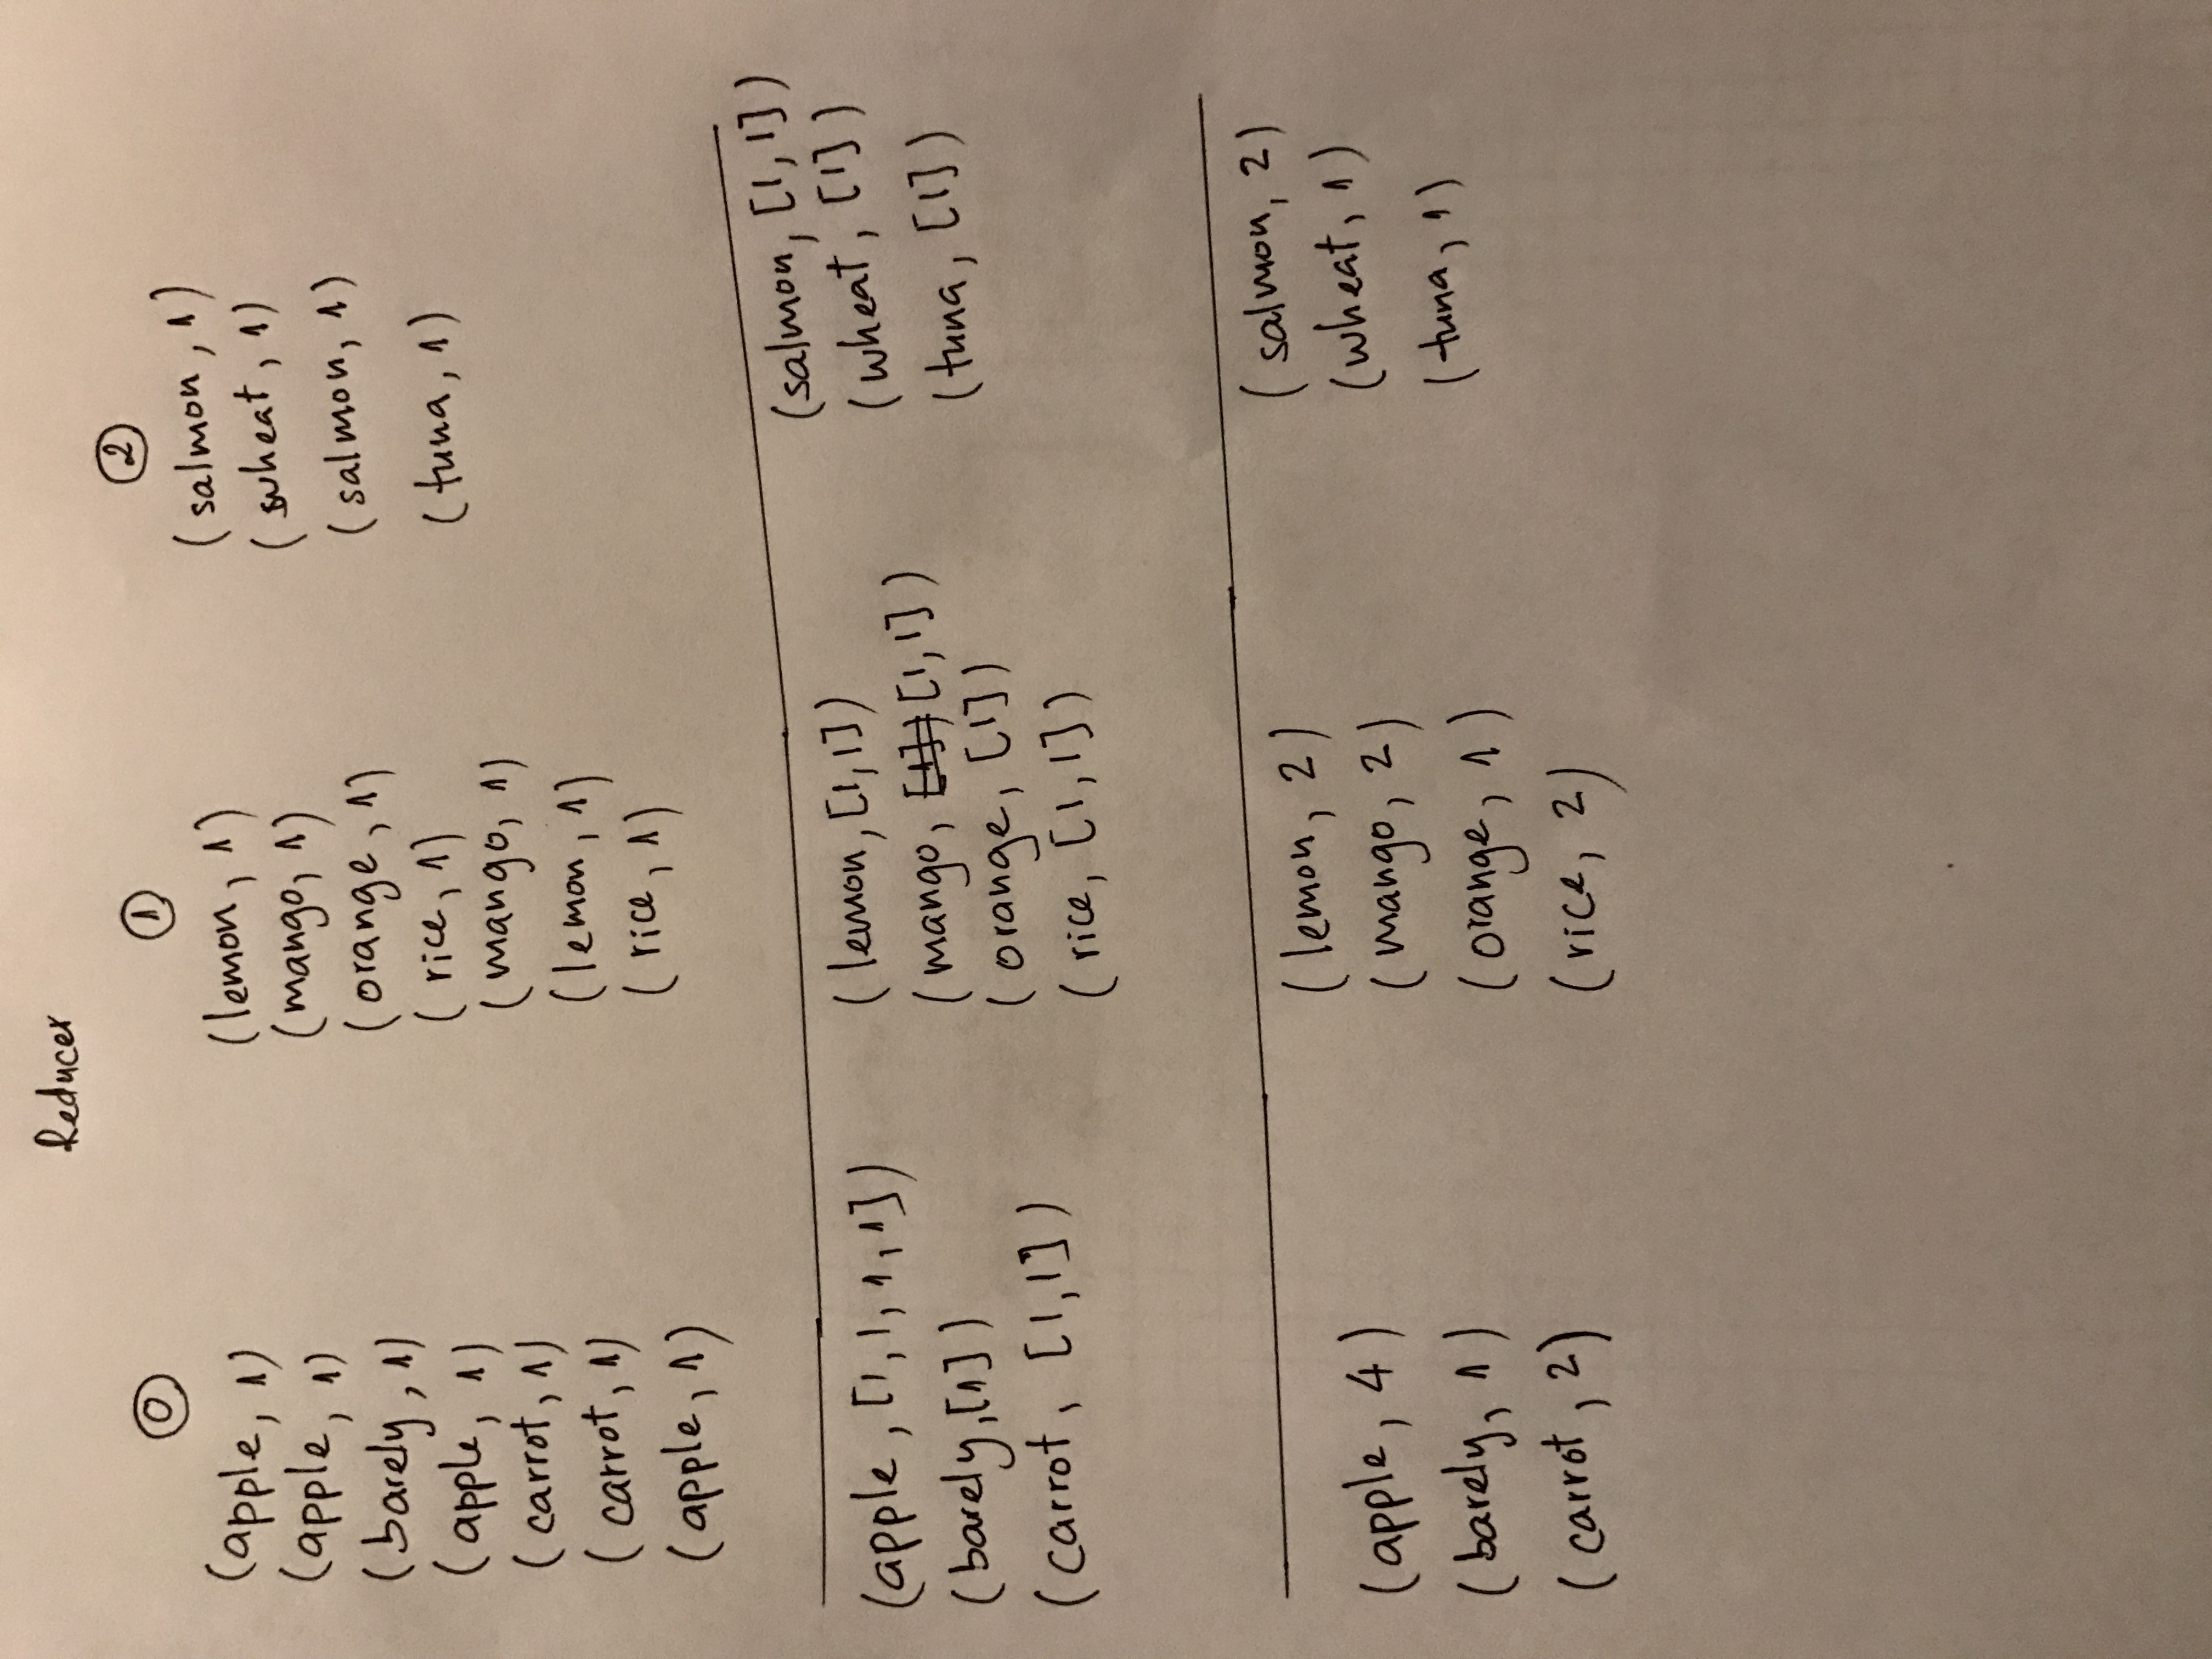 Reducer
0
(apple, 1)
(apple, 1)
(barely, 1)
(apple, 1)
(carrot, 1)
(carrot, 1)
(apple, 1)
1
(lemon, 1)
(mango, 1)
(orange, 1)
(rice, 1)
(mango, 1)
(lemon, 1)
(rice, 1)
2
(salmon, 1)
(wheat, 1)
(salmon, 1)
(tuna, 1)
(apple, [1, 1, 1, 1])
(barely, [1])
(carrot, [1, 1])
(lemon, [1, 1])
(mango, [1]) [1, 1])
(orange, [1])
(rice, [1, 1])
(salmon, [1, 1])
(wheat, [1])
(tuna, [1])
(apple, 4)
(barely, 1)
(carrot, 2)
(lemon, 2)
(mango, 2)
(orange, 1)
(rice, 2)
(salmon, 2)
(wheat, 1)
(tuna, 1)